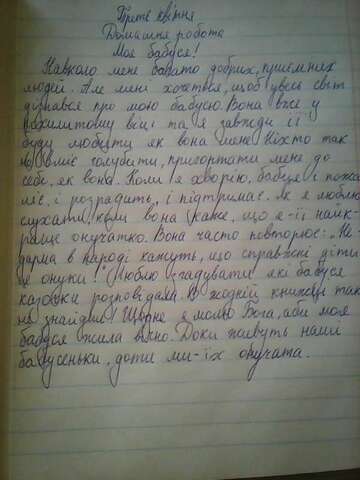 Третє квітня
Домашня робота
Моя бабуся!
Навколо мене багато добрих, приємних
людей. Але мені хочеться, щоб увесь світ
дізнався про мою бабусю. Вона вже у
похилитому віці та я завжди її
буду любити як вона мене. Ніхто так
не вміє голубити, пригортати мене до
себе, як вона. Коли я хворію, бабця і пожа
ліє, і розрадить, і підтримає. Як я люблю
слухати, коли вона каже, що я-її найк-
раще онучатко. Вона часто повторює: „Не-
дарма в народі кажуть, що справжні діти
це онуки!" Люблю згадувати які бабуся
казочки розповідала. В жодній книжці так
не знайдеш. Щодня я молю Бога, аби моя
бабуся жила вічно. Доки живуть наші
бабусеньки, доти ми-їх онучата.